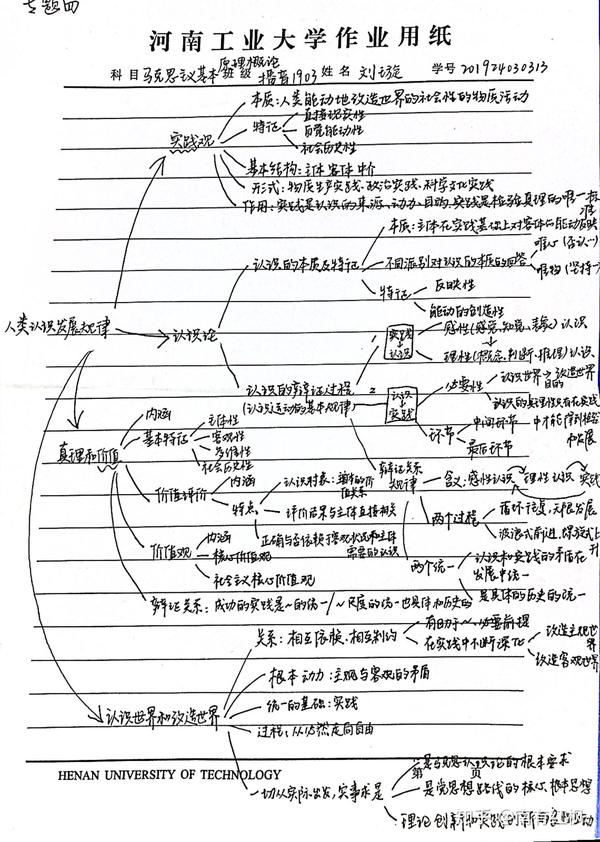 专题四
河南工业大学作业用纸
原理概论
科目 马克思主义基本 班级 播音1903 姓名 刘 学号 201924030313
本质:人类能动地改造世界的社会性的物质活动
直接现实性
特征 自觉能动性
社会历史性
实践观
基本结构:主体 客体 中介
形式:物质生产实践、政治实践、科学文化实践
作用:实践是认识的来源、动力、目的,实践是检验真理的唯一标准
本质:主体在实践基础上对客体的能动反映
唯心(否认)
认识的本质及特征 不同派别对认识的本质的回答
唯物(坚持)
特征 反映性
能动的创造性
人类认识发展规律
认识论
实践→认识 感性(感觉、知觉、表象)认识
理性(概念、判断、推理)认识
认识的辩证过程
(认识运动的基本规律)
2 认识→实践 必要性 认识世界→改造世界
目的
认识的真理性只有在实践
中才能得到检验
和发展
环节 中间环节
最后环节
真理和价值
内涵
基本特征 主体性
客观性
多维性
社会历史性
价值评价 内涵
特点 认识对象:
价值关系
评价结果与主体直接相关
正确与否依赖于客观状况和主体
需要的认识
辩证关系
规律 含义:感性认识 理性认识 实践
两个过程 循环往复,无限发展
波浪式前进、螺旋式上升
两个统一 认识和实践的矛盾在
发展中统一
是具体的历史的统一
价值观 内涵
核心价值观
社会主义核心价值观
辩证关系:成功的实践是~的统一/~尺度的统一也具体和历史的
关系:相互依赖、相互制约 有助于~必要前提
在实践中不断深化 改造主观世界
改造客观世界
根本动力:主观与客观的矛盾
认识世界和改造世界
统一的基础:实践
过程:从必然走向自由
一切从实际出发,实事求是 是马克思认识论的根本要求
是党思想路线的核心
理论创新和实践
HENAN UNIVERSITY OF TECHNOLOGY 第 页
知乎